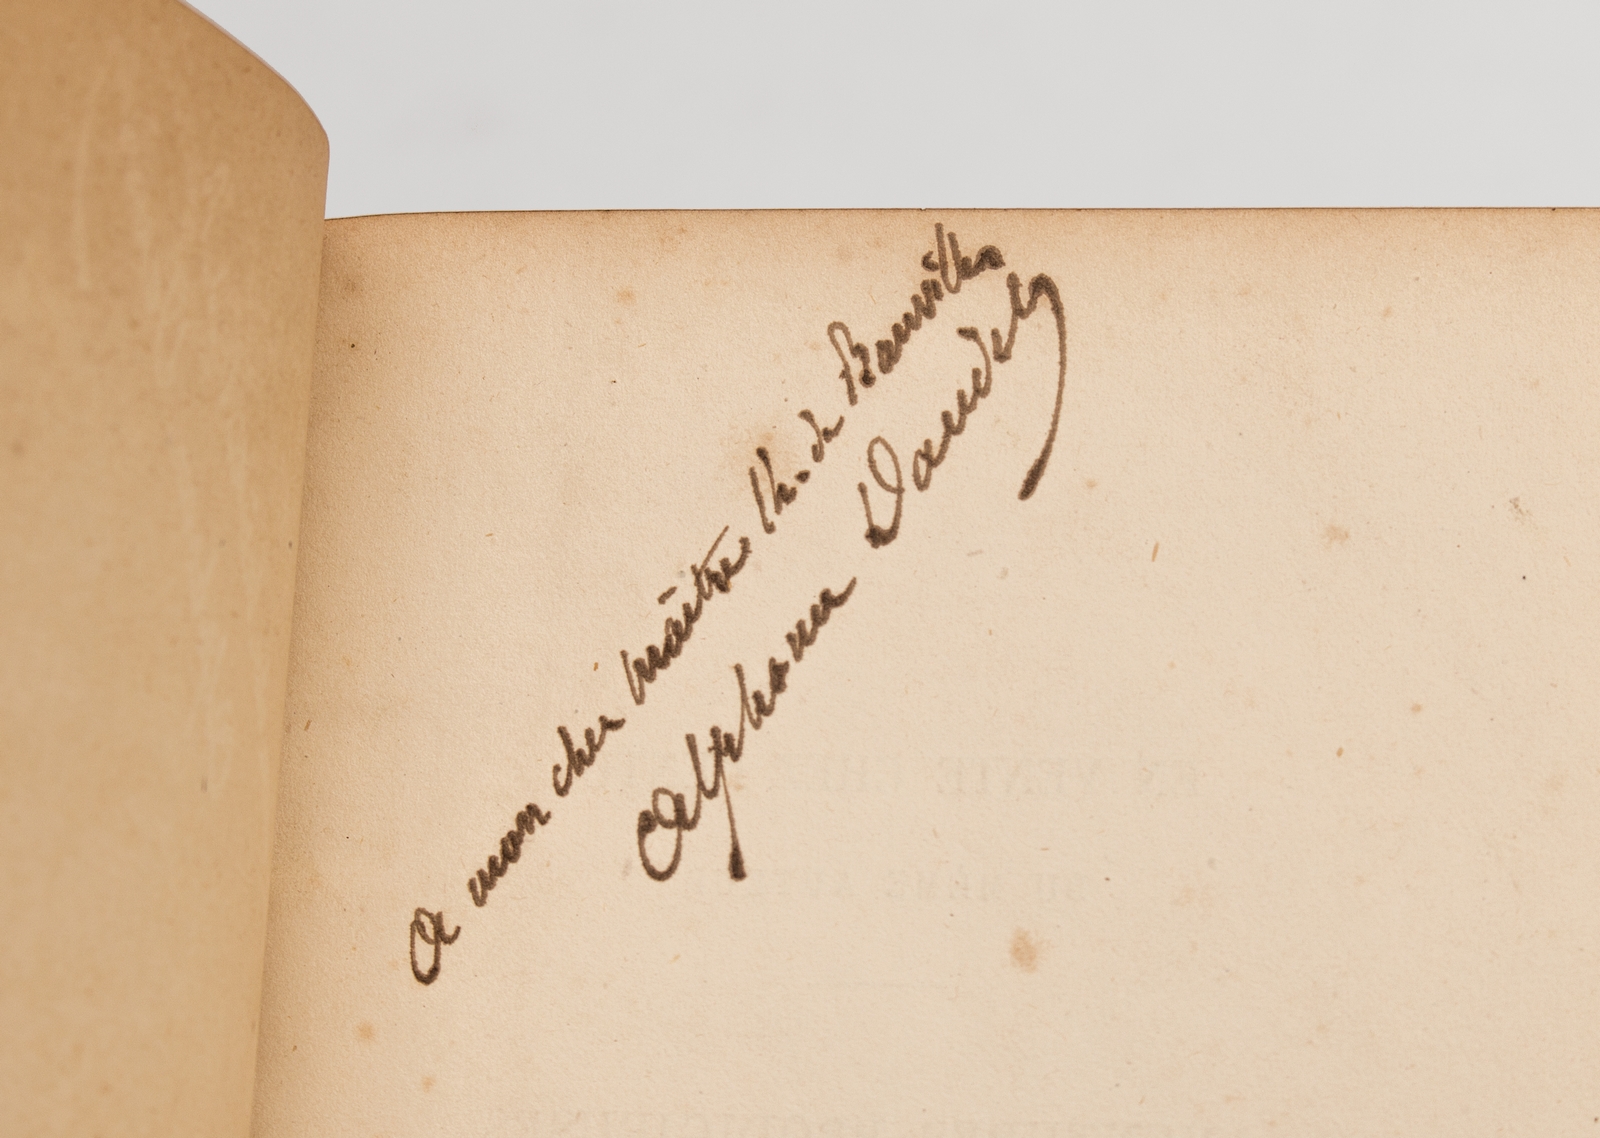 A mon cher maître Th. de Banville
Alphonse Daudet